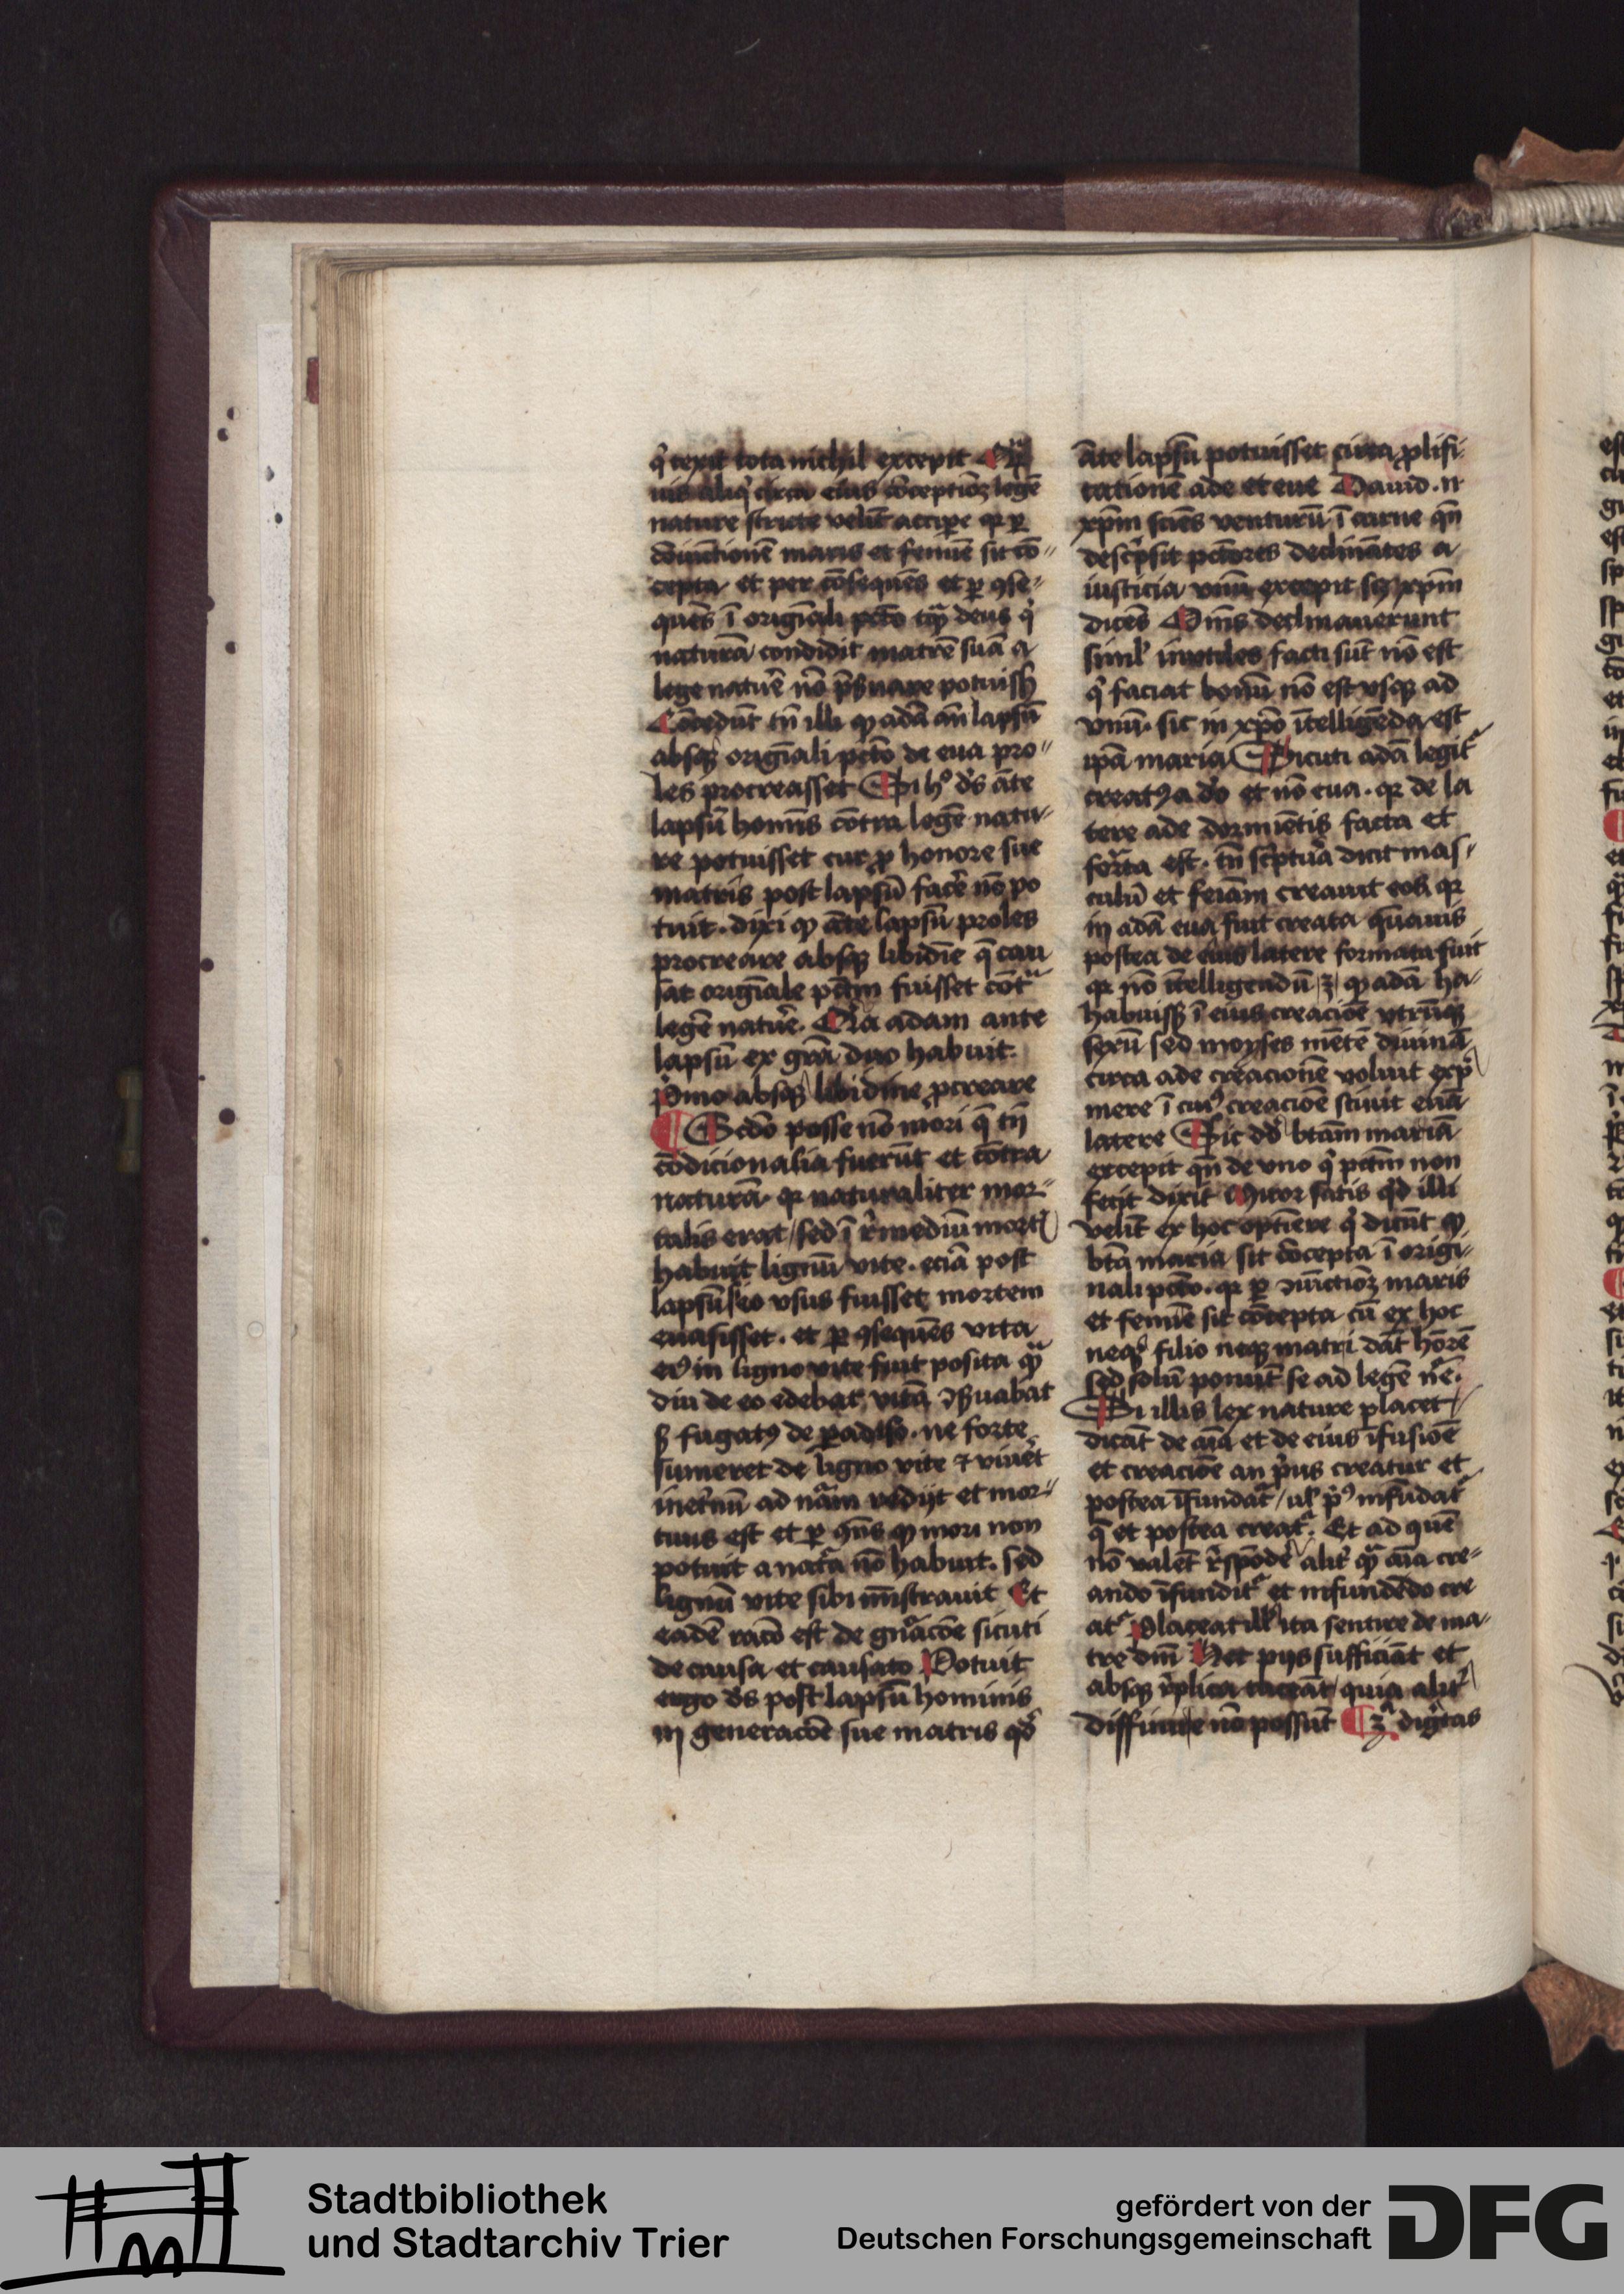 q̇ texit tota nichil excepit
nature stricte velit accipe qr ꝑ
cōiūctionē maris et femīe sit cō-
cepta et per cōsequēs et ꝑ ꝯse-
quēs ī origīali pctō tn̄ deus q̇
naturā condidit matrē suā a
lege nature nō potuiss
Cōcedūt tn̄ illi ꝙ adā an̄ lapsū
absqꝫ origīali pctō de eua pro-
les procreasset Si ds āte
lapsū homīs cōtra legē natu-
re potuisset cur ꝓ honore sue
matris post lapsū facē nō po
tuit. dixi ꝙ āte lapsū proles
procreare absqꝫ libidīe q̄ cau
sat origīale pctm fuisset cōtra
legē nature. Na adam ante
lapsū ex grā duo habuit.
p̄mo absqꝫ libidine ꝓcreare
¶ Scdo posse nō mori q̄ tn̄
cōdicionalia fuerūt et cōtra
naturā. qr naturaliter mor-
talis erat / sed ī remediū mortis
habuit lignū vite. eciā post
lapsū si eo vsus fuisset mortem
euasisset. et ꝑ ꝯsequēs vita
eiꝰ in ligno vite fuit posita qm̄
diu de eo edebat vitā ꝯseruabat
s fugatꝰ de paradiso. ne forte
sumeret de ligno vite ⁊ viuet
inetnū ad nām redijt et mor-
tuus est et ꝑ ꝯns ꝙ mori non
potuit a natura nō habuit. sed
lignū vite sibi mīstrauit Et
eadē racō est de gn̄acōe sicuti
de causa et causato Potuit
ergo ds post lapsū hominis
in generacōe sue matris qd
āte lapsū potuisset circa ꝓlifi-
cationē ade et eue Dauid. n
xpm sciēs venturū ī carne qn̄
descpsit pctores declinātes a
iusticia vnū excepit scꝫ xpm
dicēs Omīs declinauerunt
simul inutiles facti sūt nō est
q̇ faciat bonū nō est vsqꝫ ad
vnū. sic in xpo ītelligēda est
ipā maria Sicuti adā legit
creatꝰ a dō et nō eua. qr de la
tere ade dormiētis facta et
formata est. tn̄ scptura dicit mas-
culū et feīam creauit eos qr
in adā eua fuit creata quāuis
postea de eius latere formata fuit
qr nō ītelligendū ē ꝙ adā ha-
habuissꝫ ī eius creacioē vtrūqꝫ
sexū sed moyses mētē diuinā
circa ade creacionē voluit exp̄
mere ī cuiꝰ creacioē sciuit euā
latere Sic dd btām mariā
excepit qn̄ de vno q̇ pctm non
fecit dixit Miror satis qd illi
velīt ex hoc optīere q̇ dicūt ꝙ
btā maria sit cōcepta ī origi-
nali pctō. qr ꝑ ꝯiūctioꝫ maris
et femīe sit cōcepta cū ex hoc
neqꝫ filio neqꝫ matri dāt honorē
sed solū ponūt se ad legē nē.
Si illis lex nature placet /
dicāt de aīa et de eius īfusioē
et creacioē an p̄us creatur et
postea īfundat / ul pꝰ infūdat
q̄ et postea creat. Et ad quē
nō valēt respōdē aliter qm̄ aīa cre-
ando īfundit et infundēdo cre
at Placeat illis ita sentire de ma-
tre dnī Hec pijs sufficiāt et
absqꝫ replica taceāt / quia aliter
diffinire nō possūt ¶ 3a dignitas
Stadtbibliothek
und Stadtarchiv Trier
gefördert von der
Deutschen Forschungsgemeinschaft
DFG